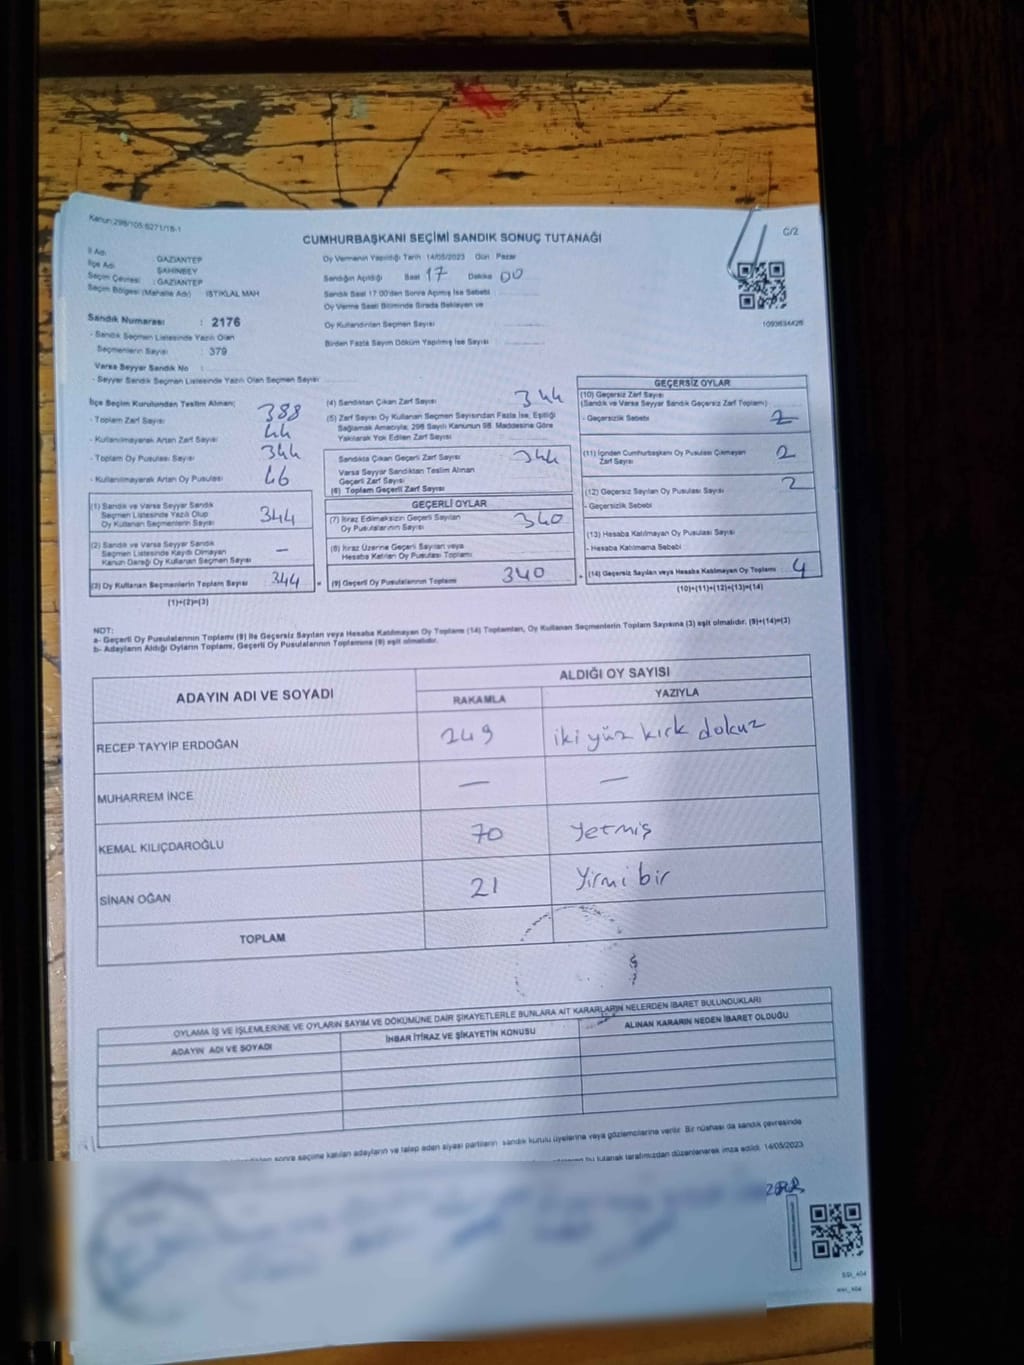 Kanun:298/105;6271/18-1
C/2
CUMHURBAŞKANI SEÇİMİ SANDIK SONUÇ TUTANAĞI
İl Adı : GAZİANTEP
İlçe Adı : ŞAHİNBEY
Seçim Çevresi : GAZİANTEP
Seçim Bölgesi (Mahalle Adı) : İSTİKLAL MAH
Oy Vermenin Yapıldığı Tarih 14/05/2023 Gün Pazar
Sandığın Açıldığı Saat 17 Dakika 00
Sandık Saat 17:00'den Sonra Açılmış İse Sebebi
Oy Verme Saati Bitiminde Sırada Bekleyen ve
Oy Kullandırılan Seçmen Sayısı
Birden Fazla Sayım Döküm Yapılmış İse Sayısı :
1093634426
Sandık Numarası : 2176
- Sandık Seçmen Listesinde Yazılı Olan
Seçmenlerin Sayısı : 379
Varsa Seyyar Sandık No :
- Seyyar Sandık Seçmen Listesinde Yazılı Olan Seçmen Sayısı
İlçe Seçim Kurulundan Teslim Alınan;
- Toplam Zarf Sayısı 388
- Kullanılmayarak Artan Zarf Sayısı 44
- Toplam Oy Pusulası Sayısı 344
- Kullanılmayarak Artan Oy Pusulası 46
(1) Sandık ve Varsa Seyyar Sandık
Seçmen Listesinde Yazılı Olup
Oy Kullanan Seçmenlerin Sayısı 344
(2) Sandık ve Varsa Seyyar Sandık
Seçmen Listesinde Kaydı Olmayan
Kanun Gereği Oy Kullanan Seçmen Sayısı —
(3) Oy Kullanan Seçmenlerin Toplam Sayısı 344
(1)+(2)=(3)
(4) Sandıktan Çıkan Zarf Sayısı 344
(5) Zarf Sayısı Oy Kullanan Seçmen Sayısından Fazla İse, Eşitliği
Sağlamak Amacıyla; 298 Sayılı Kanunun 98. Maddesine Göre
Yakılarak Yok Edilen Zarf Sayısı
Sandıkta Çıkan Geçerli Zarf Sayısı 344
Varsa Seyyar Sandıktan Teslim Alınan
Geçerli Zarf Sayısı
(6) Toplam Geçerli Zarf Sayısı
GEÇERLİ OYLAR
(7) İtiraz Edilmeksizin Geçerli Sayılan
Oy Pusulalarının Sayısı 340
(8) İtiraz Üzerine Geçerli Sayılan veya
Hesaba Katılan Oy Pusulası Toplamı
= (9) Geçerli Oy Pusulalarının Toplamı 340
GEÇERSİZ OYLAR
(10) Geçersiz Zarf Sayısı
(Sandık ve Varsa Seyyar Sandık Geçersiz Zarf Toplamı)
- Geçersizlik Sebebi 2
(11) İçinden Cumhurbaşkanı Oy Pusulası Çıkmayan
Zarf Sayısı 2
(12) Geçersiz Sayılan Oy Pusulası Sayısı 2
- Geçersizlik Sebebi
(13) Hesaba Katılmayan Oy Pusulası Sayısı
- Hesaba Katılmama Sebebi
+ (14) Geçersiz Sayılan veya Hesaba Katılmayan Oy Toplamı : 4
(10)+(11)+(12)+(13)=(14)
NOT:
a- Geçerli Oy Pusulalarının Toplamı (9) ile Geçersiz Sayılan veya Hesaba Katılmayan Oy Toplamı (14) Toplamları, Oy Kullanan Seçmenlerin Toplam Sayısına (3) eşit olmalıdır. (9)+(14)=(3)
b- Adayların Aldığı Oyların Toplamı, Geçerli Oy Pusulalarının Toplamına (9) eşit olmalıdır.
ADAYIN ADI VE SOYADI
ALDIĞI OY SAYISI
RAKAMLA YAZIYLA
RECEP TAYYİP ERDOĞAN 249 iki yüz kırk dokuz
MUHARREM İNCE — —
KEMAL KILIÇDAROĞLU 70 Yetmiş
SİNAN OĞAN 21 Yirmi bir
TOPLAM
OYLAMA İŞ VE İŞLEMLERİNE VE OYLARIN SAYIM VE DÖKÜMÜNE DAİR ŞİKAYETLERLE BUNLARA AİT KARARLARIN NELERDEN İBARET BULUNDUKLARI
ADAYIN ADI VE SOYADI İHBAR İTİRAZ VE ŞİKAYETİN KONUSU ALINAN KARARIN NEDEN İBARET OLDUĞU
sonra seçime katılan adayların ve talep eden siyasi partilerin sandık kurulu üyelerine veya gözlemcilerine verilir. Bir nüshası da sandık çevresinde
bu tutanak tarafımızdan düzenlenerek imza edildi. 14/05/2023